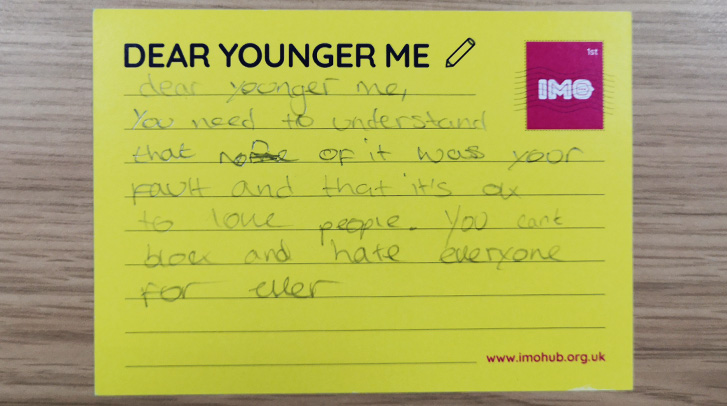 DEAR YOUNGER ME
1st
IMO
dear younger me,
You need to understand
that none of it was your
fault and that it's ok
to love people. You cant
block and hate everyone
for ever
www.imohub.org.uk